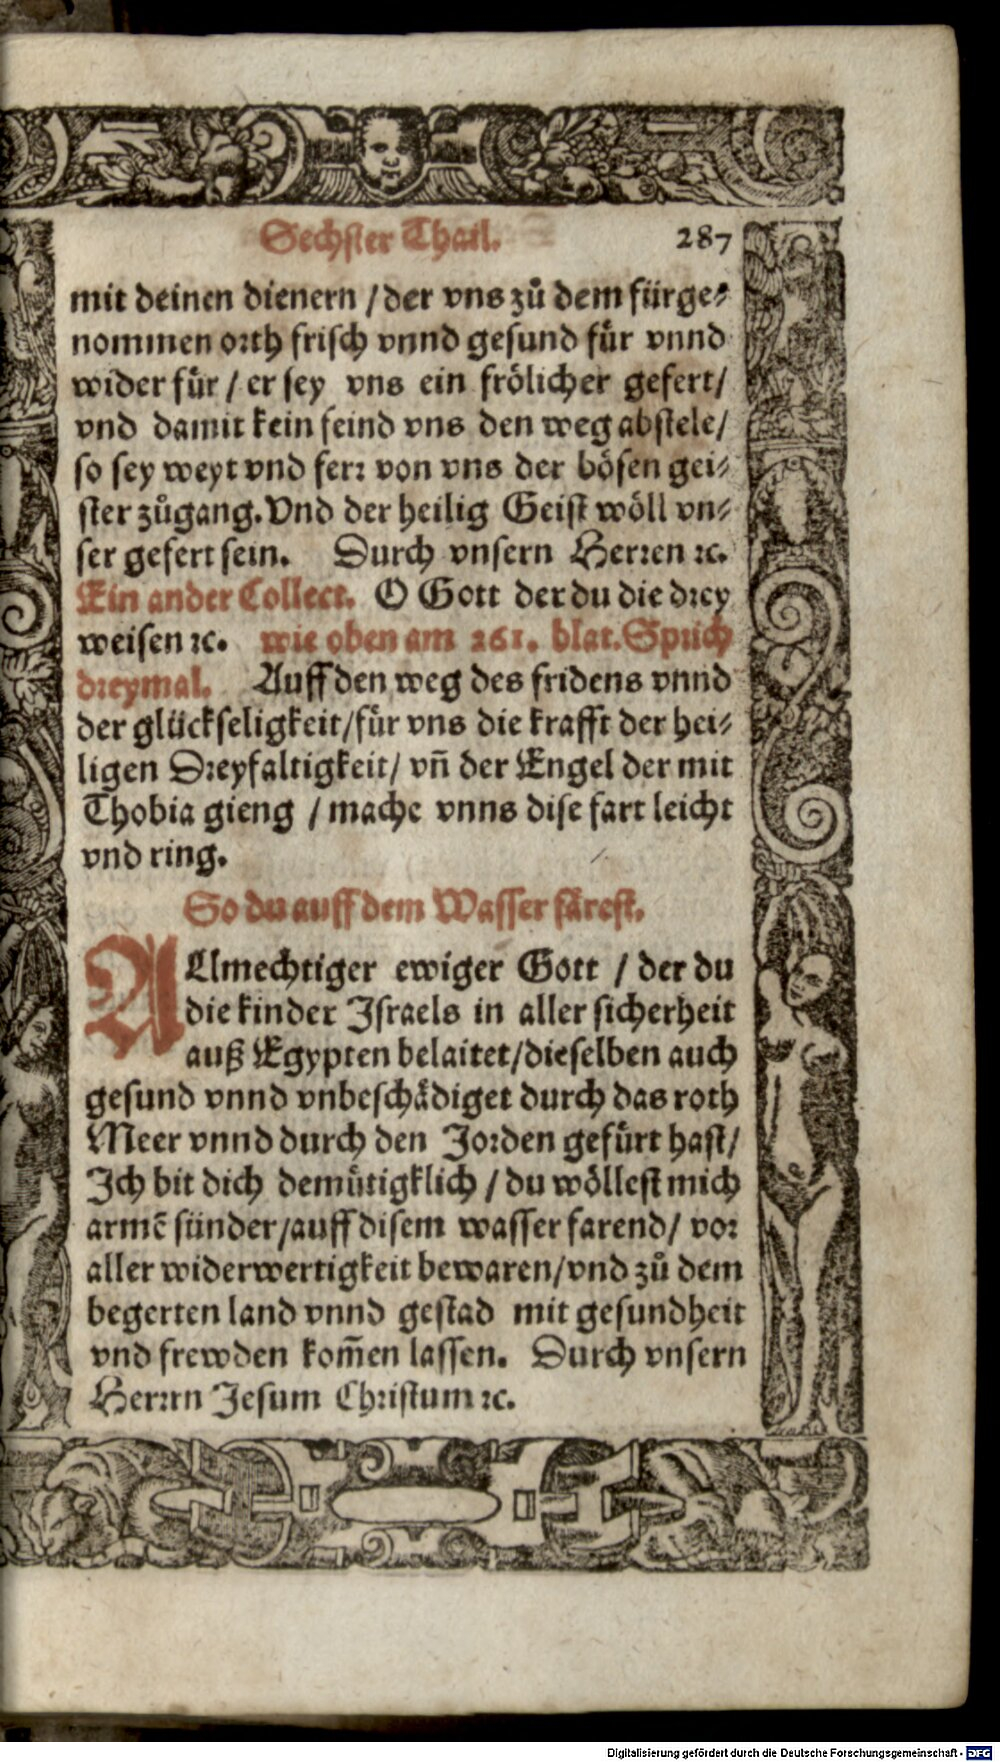 Sechster Thail. 287
mit deinen dienern / der vns zů dem fürge⸗
nommen orth frisch vnnd gesund für vnnd
wider für / er sey vns ein frölicher gefert/
vnd damit kein feind vns den weg abstele/
so sey weyt vnd ferr von vns der bösen gei⸗
ster zůgang. Vnd der heilig Geist wöll vn⸗
ser gefert sein. Durch vnsern Herren ꝛc.
Ein ander Collect. O Gott der du die drey
weisen ꝛc. wie oben am 261. blat. Sprich
dreymal. Auff den weg des fridens vnnd
der glückseligkeit/für vns die krafft der hei⸗
ligen Dreyfaltigkeit/ vn̄ der Engel der mit
Thobia gieng / mache vnns dise fart leicht
vnd ring.
So du auff dem Wasser färest.
ALmechtiger ewiger Gott / der du
die kinder Israels in aller sicherheit
auß Egypten belaitet/dieselben auch
gesund vnnd vnbeschädiget durch das roth
Meer vnnd durch den Jorden gefürt hast/
Ich bit dich demütigklich / du wöllest mich
armē sünder/auff disem wasser farend/ vor
aller widerwertigkeit bewaren/vnd zů dem
begerten land vnnd gestad mit gesundheit
vnd frewden kom̄en lassen. Durch vnsern
Herrrn Jesum Christum ꝛc.
Digitalisierung gefördert durch die Deutsche Forschungsgemeinschaft - DFG